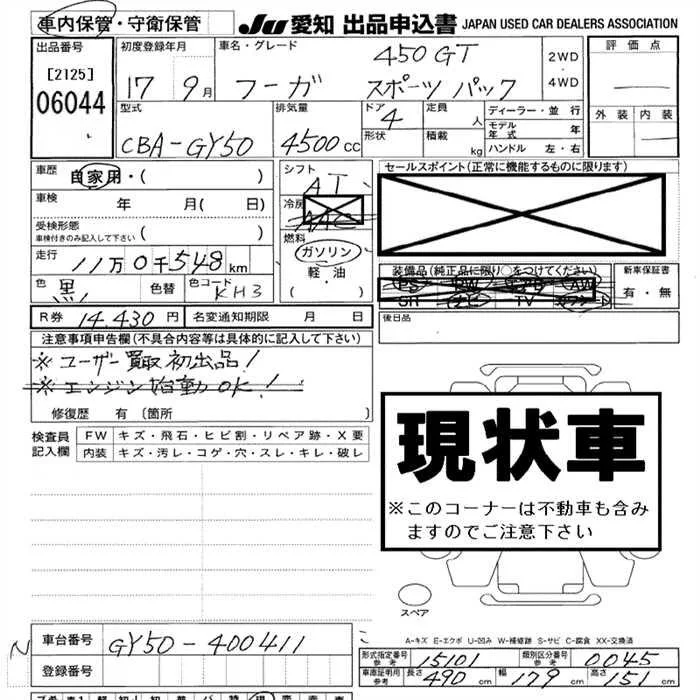 車内保管・守衛保管 JU 愛知 出品申込書 JAPAN USED CAR DEALERS ASSOCIATION
出品番号 [2125] 06044
初度登録年月 17 9月
車名・グレード 450GT
フーガ スポーツパック
2WD・4WD
評価点
外装 内装
型式 CBA-GY50
排気量 4500cc
ドア 4
形状
定員 人
積載 kg
ディーラー・並行
モデル年式 年
ハンドル 左・右
車歴 自家用・( )
車検 年 月( 日)
受検形態
車検付きのみ記入して下さい
走行 11万0千548km
色 黒 色替 色コード KH3
シフト AT
冷房 AAC
燃料 ガソリン
軽・油
( )
セールスポイント(正常に機能するものに限ります)
装備品(純正品に限り○をつけてください)
PS PW エアB AW
SR ナビ TV カワシート
新車保証書
有・無
R券 14,430円 名変通知期限 月 日
後日品
注意事項申告欄(不具合内容等は具体的に記入して下さい)
※ユーザー買取初出品!
※エンジン始動OK!
修復歴 有 (箇所 )
検査員記入欄
FW キズ・飛石・ヒビ割・リペア跡・X要
内装 キズ・汚レ・コゲ・穴・スレ・キレ・破レ
現状車
※このコーナーは不動車も含み
ますのでご注意下さい
スペア
A-キズ E-エクボ U-凹み W-補修跡 S-サビ C-腐食 XX-交換済
N 車台番号 GY50-400411
登録番号
形式指定番号 参考 15101 類別区分番号 参考 0045
車庫証明用 参考 長さ 490cm 幅 179cm 高さ 151cm